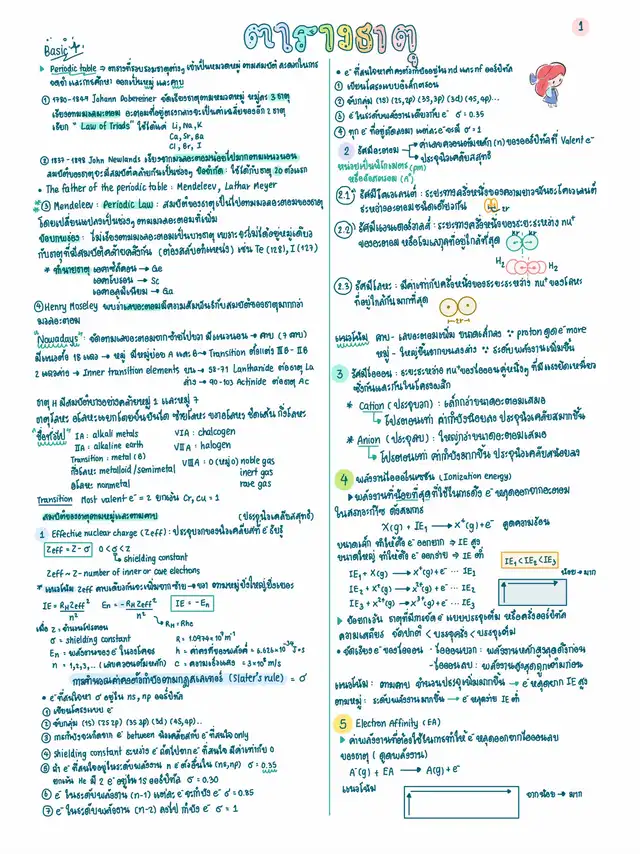 ตารางธาตุ
1
Basic
Periodic table ⇒ ตารางที่รวบรวมธาตุต่างๆ เข้าเป็นหมวดหมู่ ตามสมบัติ สะดวกในการ
จดจำ และการศึกษา ออกเป็นหมู่ และคาบ
① 1780-1849 Johann Dobereiner จัดเรียงธาตุตามหมวดหมู่ หมู่ละ 3 ธาตุ
เรียงตามมวลอะตอม อะตอมที่อยู่ตรงกลางจะเป็นค่าเฉลี่ยของอีก 2 ธาตุ
เรียก " Law of Triads" ใช้ได้แค่ Li, Na, K
Ca, Sr, Ba
Cl, Br, I
② 1837-1898 John Newlands เรียงจากมวลอะตอมน้อยไปมากตามแนวนอน
สมบัติของธาตุจะมีสมบัติคล้ายกันเป็นช่วงๆ ข้อจำกัด : ใช้ได้กับธาตุ 20 ตัวแรก
• The father of the periodic table : Mendeleev, Lothar Meyer
③ Mendeleev : Periodic Law : สมบัติของธาตุเป็นไปตามมวลอะตอมของธาตุ
โดยเปลี่ยนแปลงเป็นช่วงๆ ตามมวลอะตอมที่เพิ่ม
ข้อบกพร่อง : ไม่เรียงตามมวลอะตอมเป็นบางธาตุ เพราะจะไม่ได้อยู่หมู่เดียว
กับธาตุที่มีสมบัติคล้ายคลึงกัน (ต้องสลับตำแหน่ง) เช่น Te (128), I (127)
* ทำนายธาตุ เอคาซิลิคอน → Ge
เอคาโบรอน → Sc
เอคาอลูมิเนียม → Ga
④ Henry Moseley พบว่าเลขอะตอมมีความสัมพันธ์กับสมบัติของธาตุมากกว่า
มวลอะตอม
"Nowadays" : จัดตามเลขอะตอมจากซ้ายไปขวา มีแนวนอน → คาบ (7 คาบ)
มีแนวตั้ง 18 แถว → หมู่ มีหมู่ย่อย A และ B → Transition ตั้งแต่ IIIB - IIB
2 แถวล่าง → Inner transition elements บน → 58-71 Lanthanide ต่อธาตุ La
ล่าง → 90-103 Actinide ต่อธาตุ Ac
ธาตุ H มีสมบัติบางอย่างคล้ายหมู่ 1 และหมู่ 7
ธาตุโลหะ อโลหะแยกโดยขั้นบันได ซ้ายโลหะ ขวาอโลหะ ชิดเส้น กึ่งโลหะ
"ชื่อทั่วไป" IA : alkali metals VIA : chalcogen
IIA : alkaline earth VIIA : halogen
Transition : metal (B) VIIIA : 0 (หมู่0) noble gas
กึ่งโลหะ : metalloid/semimetal inert gas
อโลหะ : nonmetal rare gas
Transition Most valent e⁻ = 2 ยกเว้น Cr, Cu = 1
สมบัติของธาตุตามหมู่และตามคาบ (ประจุนิวเคลียสสุทธิ)
1 Effective nuclear charge (Zeff) : ประจุบวกของนิวเคลียสที่ e⁻ รับรู้
Zeff = Z - σ 0 < σ < Z
shielding constant
Zeff ~ Z - number of inner or core electrons
* แนวโน้ม Zeff คาบเดียวกันจะเพิ่มจากซ้าย → ขวา ตามหมู่ยิ่งใหญ่ยิ่งเยอะ
IE = R_H Zeff² / n² En = -R_H Zeff² / n² IE = -En
R_H = Rhc
เมื่อ Z : จำนวนโปรตอน
σ = shielding constant R = 1.0974 × 10⁷ m⁻¹
En = พลังงานของ e⁻ ในวงโคจร h = ค่าคงที่ของพลังค์ = 6.626 × 10⁻³⁴ J·s
n = 1,2,3,.. (เลขควอนตัมหลัก) c = ความเร็วแสง = 3 × 10⁸ m/s
การคำนวณค่าคงที่กำบังตามกฎสเลเตอร์ (Slater's rule) = σ
• e⁻ ที่สนใจหา σ อยู่ใน ns, np ออร์บิทัล
① เขียนโครงแบบ e⁻
② จับกลุ่ม (1s) (2s 2p) (3s 3p) (3d) (4s, 4p)...
③ การกำบังจะเกิดจาก e⁻ between นิวเคลียสกับ e⁻ ที่สนใจ only
④ shielding constant ระหว่าง e⁻ ถัดไปจาก e⁻ ที่สนใจ มีค่าเท่ากับ 0
⑤ ถ้า e⁻ ที่สนใจอยู่ในระดับพลังงาน n e⁻ ตัวอื่นใน (ns, np) σ = 0.35
ยกเว้น He มี 2 e⁻ อยู่ใน 1s ออร์บิทัล σ = 0.30
⑥ e⁻ ในระดับพลังงาน (n-1) แต่ละ e⁻ จะกำบัง e⁻ σ = 0.85
⑦ e⁻ ในระดับพลังงาน (n-2) ลงไป กำบัง e⁻ σ = 1
• e⁻ ที่สนใจหาค่าคงที่กำบังอยู่ใน nd และ nf ออร์บิทัล
① เขียนโครงแบบอิเล็กตรอน
② จับกลุ่ม (1s) (2s, 2p) (3s, 3p) (3d) (4s, 4p)...
③ e⁻ ในระดับพลังงานเดียวกับ e⁻ σ = 0.35
④ ทุก e⁻ ที่อยู่ถัดลงมา แต่ละ e⁻ จะมี σ = 1
2 รัศมีอะตอม ค่าเลขควอนตัมหลัก (n) ของออร์บิทัลที่ Valent e⁻
ประจุนิวเคลียสสุทธิ
หน่วยเป็นพิโกเมตร (pm)
หรืออังสตรอม (A°)
2.1 รัศมีโคเวเลนต์ : ระยะทางครึ่งหนึ่งของความยาวพันธะโคเวเลนต์
ระหว่างอะตอมชนิดเดียวกัน
2.2) รัศมีแวนเดอร์วาลส์ : ระยะทางครึ่งหนึ่งของระยะระหว่าง nu⁺
ของอะตอม หรือโมเลกุลที่อยู่ใกล้ที่สุด
H₂
H₂
2.3) รัศมีโลหะ : มีค่าเท่ากับครึ่งหนึ่งของระยะระหว่าง nu⁺ ของโลหะ
ที่อยู่ใกล้กันมากที่สุด
2r
แนวโน้ม คาบ - เลขอะตอมเพิ่ม ขนาดเล็กลง ∵ proton ดูด e⁻ more
หมู่ - ใหญ่ขึ้นจากบนลงล่าง ∵ ระดับพลังงานเพิ่มขึ้น
3 รัศมีไอออน : ระยะระหว่าง nu⁺ ของไอออนคู่หนึ่งๆ ที่มีแรงยึดเหนี่ยว
ซึ่งกันและกันในโครงผลึก
* Cation (ประจุบวก) : เล็กกว่าขนาดอะตอมเสมอ
โปรตอนเท่า แต่กำบังน้อยลง ประจุนิวเคลียสมากขึ้น
* Anion (ประจุลบ) : ใหญ่กว่าขนาดอะตอมเสมอ
โปรตอนเท่า แต่กำบังมากขึ้น ประจุนิวเคลียสน้อยลง
4 พลังงานไอออไนเซชัน (Ionization energy)
พลังงานที่น้อยที่สุดที่ใช้ในการดึง e⁻ หลุดออกจากอะตอม
ในสภาวะก๊าซ ดังสมการ
X(g) + IE₁ → X⁺(g) + e⁻ ดูดความร้อน
ขนาดเล็ก ทำให้ดึง e⁻ ออกยาก ⇒ IE สูง
ขนาดใหญ่ ทำให้ดึง e⁻ ออกง่าย ⇒ IE ต่ำ
IE₁ < IE₂ < IE₃
IE₁ + X(g) → X⁺(g) + e⁻ ... IE₁
IE₂ + X⁺(g) → X²⁺(g) + e⁻ ... IE₂
IE₃ + X²⁺(g) → X³⁺(g) + e⁻ ... IE₃
น้อย → มาก
ข้อยกเว้น ธาตุที่มีการจัด e⁻ แบบบรรจุเต็ม หรือครึ่งออร์บิทัล
ความเสถียร จัดปกติ < บรรจุครึ่ง < บรรจุเต็ม
• จัดเรียง e⁻ ของไอออน - ไอออนบวก : พลังงานหลักสูงสุดดึงก่อน
- ไอออนลบ : พลังงานสูงสุดถูกเติมก่อน
แนวโน้ม : ตามคาบ จำนวนประจุเพิ่มมากขึ้น → e⁻ หลุดยาก IE สูง
ตามหมู่ : ระดับพลังงานมากขึ้น → e⁻ หลุดง่าย IE ต่ำ
5 Electron Affinity (EA)
ค่าพลังงานที่ต้องใช้ในการทำให้ e⁻ หลุดออกจากไอออนลบ
ของธาตุ (ดูดพลังงาน)
A⁻(g) + EA → A(g) + e⁻
แนวโน้ม
จากน้อย → มาก